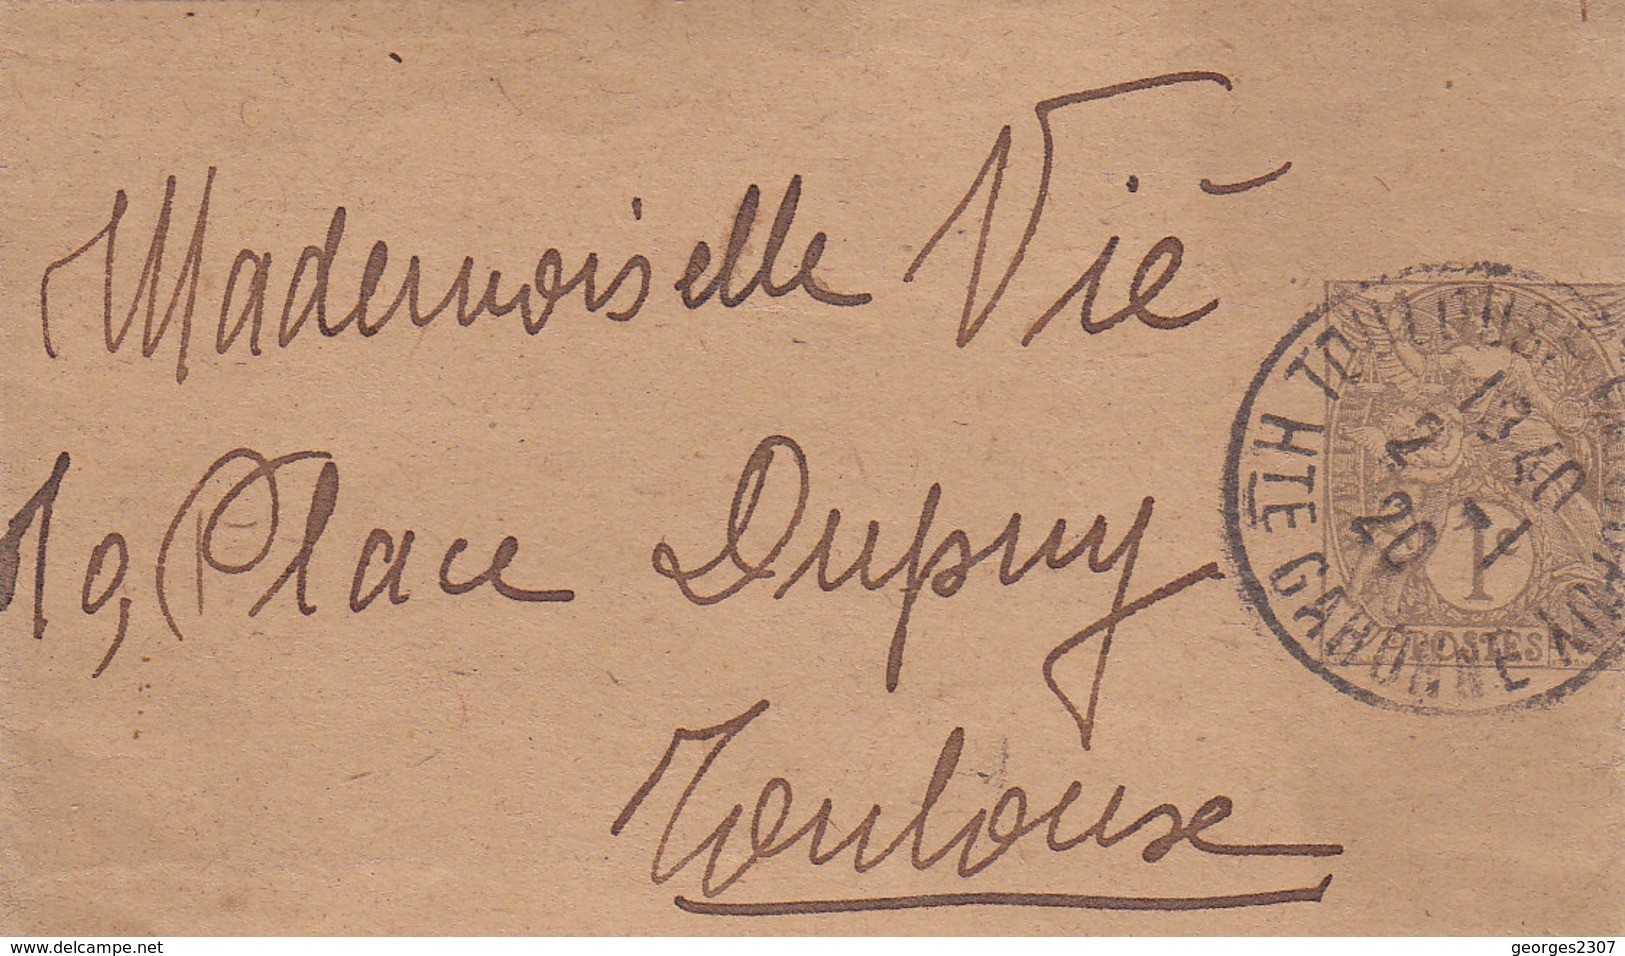 Mademoiselle Vié
10, Place Dupuy
Toulouse
TOULOUSE
13 40
2 1
20
HTE GARONNE
1
POSTES
www.delcampe.net
georges2307